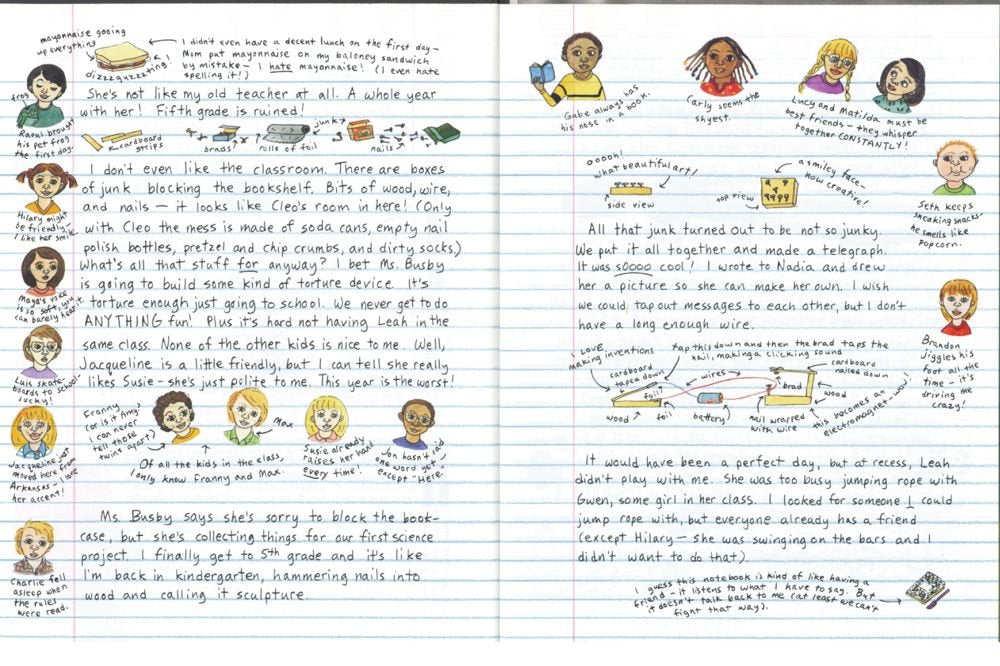 mayonnaise gooing
up everything
dizzzguzzzting!
I didn't even have a decent lunch on the first day—
Mom put mayonnaise on my baloney sandwich
by mistake — I hate mayonnaise! (I even hate
spelling it!)
frog
Raoul brought
his pet frog
the first day.
She's not like my old teacher at all. A whole year
with her! Fifth grade is ruined!
cardboard
strips
brads?
rolls of foil
junk
nails
Hilary might
be friendly—
I like her smile.
Maya's voice
is so soft, you
can barely hear it.
Luis skate-
boards to school—
lucky!
I don't even like the classroom. There are boxes
of junk blocking the bookshelf. Bits of wood, wire,
and nails — it looks like Cleo's room in here! (Only
with Cleo the mess is made of soda cans, empty nail
polish bottles, pretzel and chip crumbs, and dirty socks.)
What's all that stuff for anyway? I bet Ms. Busby
is going to build some kind of torture device. It's
torture enough just going to school. We never get to do
ANYTHING fun! Plus it's hard not having Leah in the
same class. None of the other kids is nice to me. Well,
Jacqueline is a little friendly, but I can tell she really
likes Susie — she's just polite to me. This year is the worst!
Jacqueline just
moved here from
Arkansas — I love
her accent!
Franny
(or is it Amy?
I can never
tell those
twins apart)
Max
Of all the kids in the class,
I only know Franny and Max.
Susie already
raises her hand
every time!
Jon hasn't said
one word yet—
except "Here."
Charlie fell
asleep when
the rules
were read.
Ms. Busby says she's sorry to block the book-
case, but she's collecting things for our first science
project. I finally get to 5th grade and it's like
I'm back in kindergarten, hammering nails into
wood and calling it sculpture.
Gabe always has
his nose in a book.
Carly seems the
shyest.
Lucy and Matilda must be
best friends — they whisper
together CONSTANTLY!
ooooh!
What beautiful art!
side view
a smiley face—
how creative!
top view
Seth keeps
sneaking snacks—
he smells like
popcorn.
All that junk turned out to be not so junky.
We put it all together and made a telegraph.
It was soooo cool! I wrote to Nadia and drew
her a picture so she can make her own. I wish
we could tap out messages to each other, but I don't
have a long enough wire.
Brandon
jiggles his
foot all the
time — it's
driving me
crazy!
I LOVE
making inventions
tap this down and then the brad taps the
nail, making a clicking sound
cardboard
taped down
foil
wires
cardboard
nailed down
brad
wood
wood
foil
battery
nail wrapped
with wire
this becomes an
electromagnet—wow!
It would have been a perfect day, but at recess, Leah
didn't play with me. She was too busy jumping rope with
Gwen, some girl in her class. I looked for someone I could
jump rope with, but everyone already has a friend
(except Hilary — she was swinging on the bars and I
didn't want to do that).
I guess this notebook is kind of like having a
friend — it listens to what I have to say. But
it doesn't talk back to me (at least we can't
fight that way).